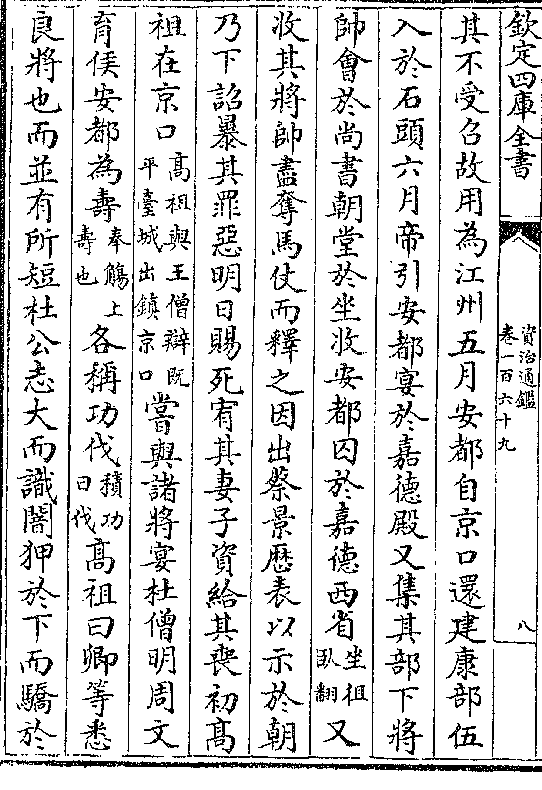 欽定四庫全書
資治通鑑
卷一百六十九
八
其不受召故用為江州五月安都自京口還建康部伍
入於石頭六月帝引安都宴於嘉德殿又集其部下將
帥會於尚書朝堂於坐收安都囚於嘉德西省坐祖臥翻又
收其將帥盡奪馬仗而釋之因出蔡景歴表以示於朝
乃下詔暴其罪惡明日賜死宥其妻子資給其喪初髙
祖在京口髙祖與王僧辯既平臺城出鎮京口嘗與諸將宴杜僧明周文
育侯安都為壽奉觴上壽也各稱功伐積功曰伐髙祖曰卿等悉
良將也而並有所短杜公志大而識闇狎於下而驕於